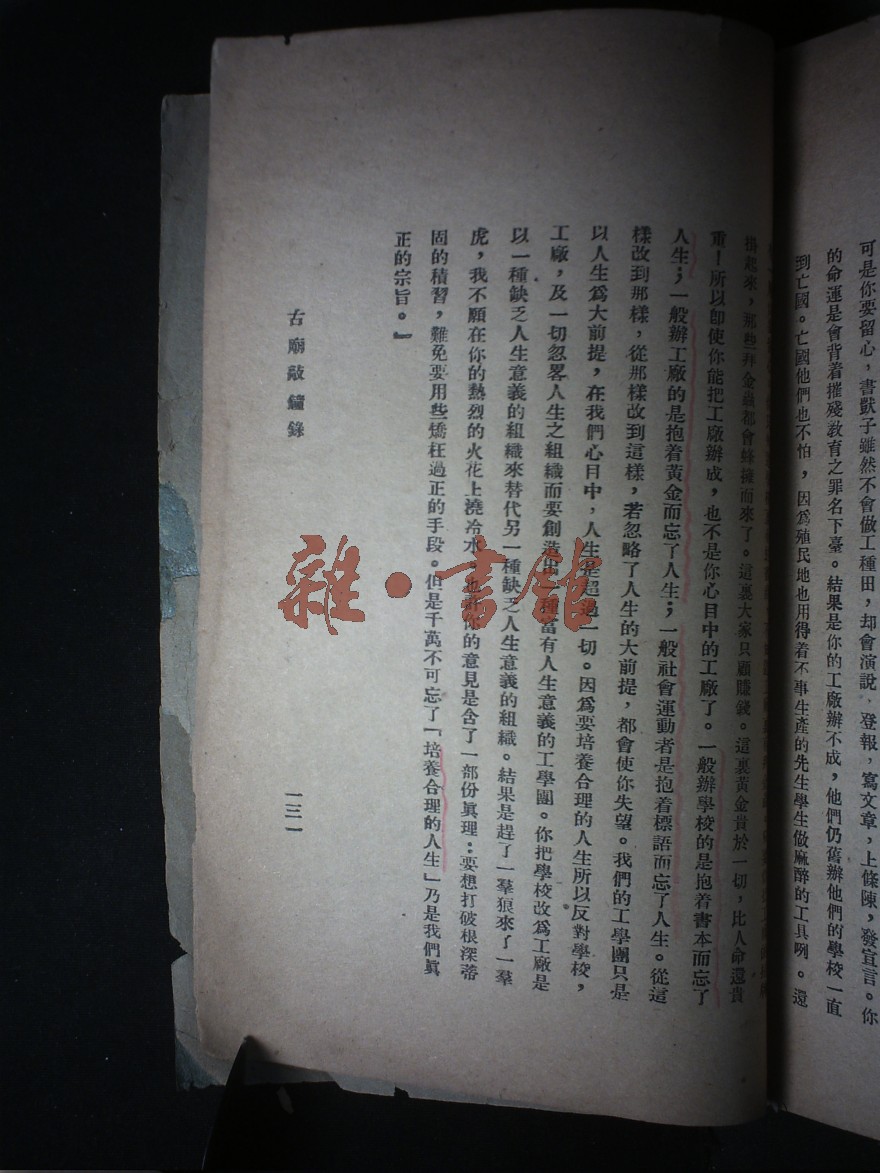 可是你要留心，書獃子雖然不會做工種田，却會演說、登報，寫文章，上條陳，發宣言。你
的命運是會背着摧殘教育之罪名下臺。結果是你的工廠辦不成，他們仍舊辦他們的學校一直
到亡國。亡國他們也不怕，因爲殖民地也用得着不事生產的先生學生做麻醉的工具咧。還
掛起來，那些拜金蟲都會蜂擁而來了。這裏大家只顧賺錢。這裏黃金貴於一切，比人命還貴
重！所以卽使你能把工廠辦成，也不是你心目中的工廠了。一般辦學校的是抱着書本而忘了
人生；一般辦工廠的是抱着黃金而忘了人生；一般社會運動者是抱着標語而忘了人生。從這
樣改到那樣，從那樣改到這樣，若忽略了人生的大前提，都會使你失望。我們的工學團只是
以人生爲大前提，在我們心目中，人生是超過一切。因爲要培養合理的人生所以反對學校，
工廠，及一切忽畧人生之組織而要創造出一種富有人生意義的工學團。你把學校改爲工廠是
以一種缺乏人生意義的組織來替代另一種缺乏人生意義的組織。結果是趕了一羣狼來了一羣
虎，我不願在你的熱烈的火花上澆冷水。也許你的意見是含了一部份眞理：要想打破根深蒂
固的積習，難免要用些矯枉過正的手段。但是千萬不可忘了「培養合理的人生」乃是我們眞
正的宗旨。』
古廟敲鐘錄
一三一
雜·書館